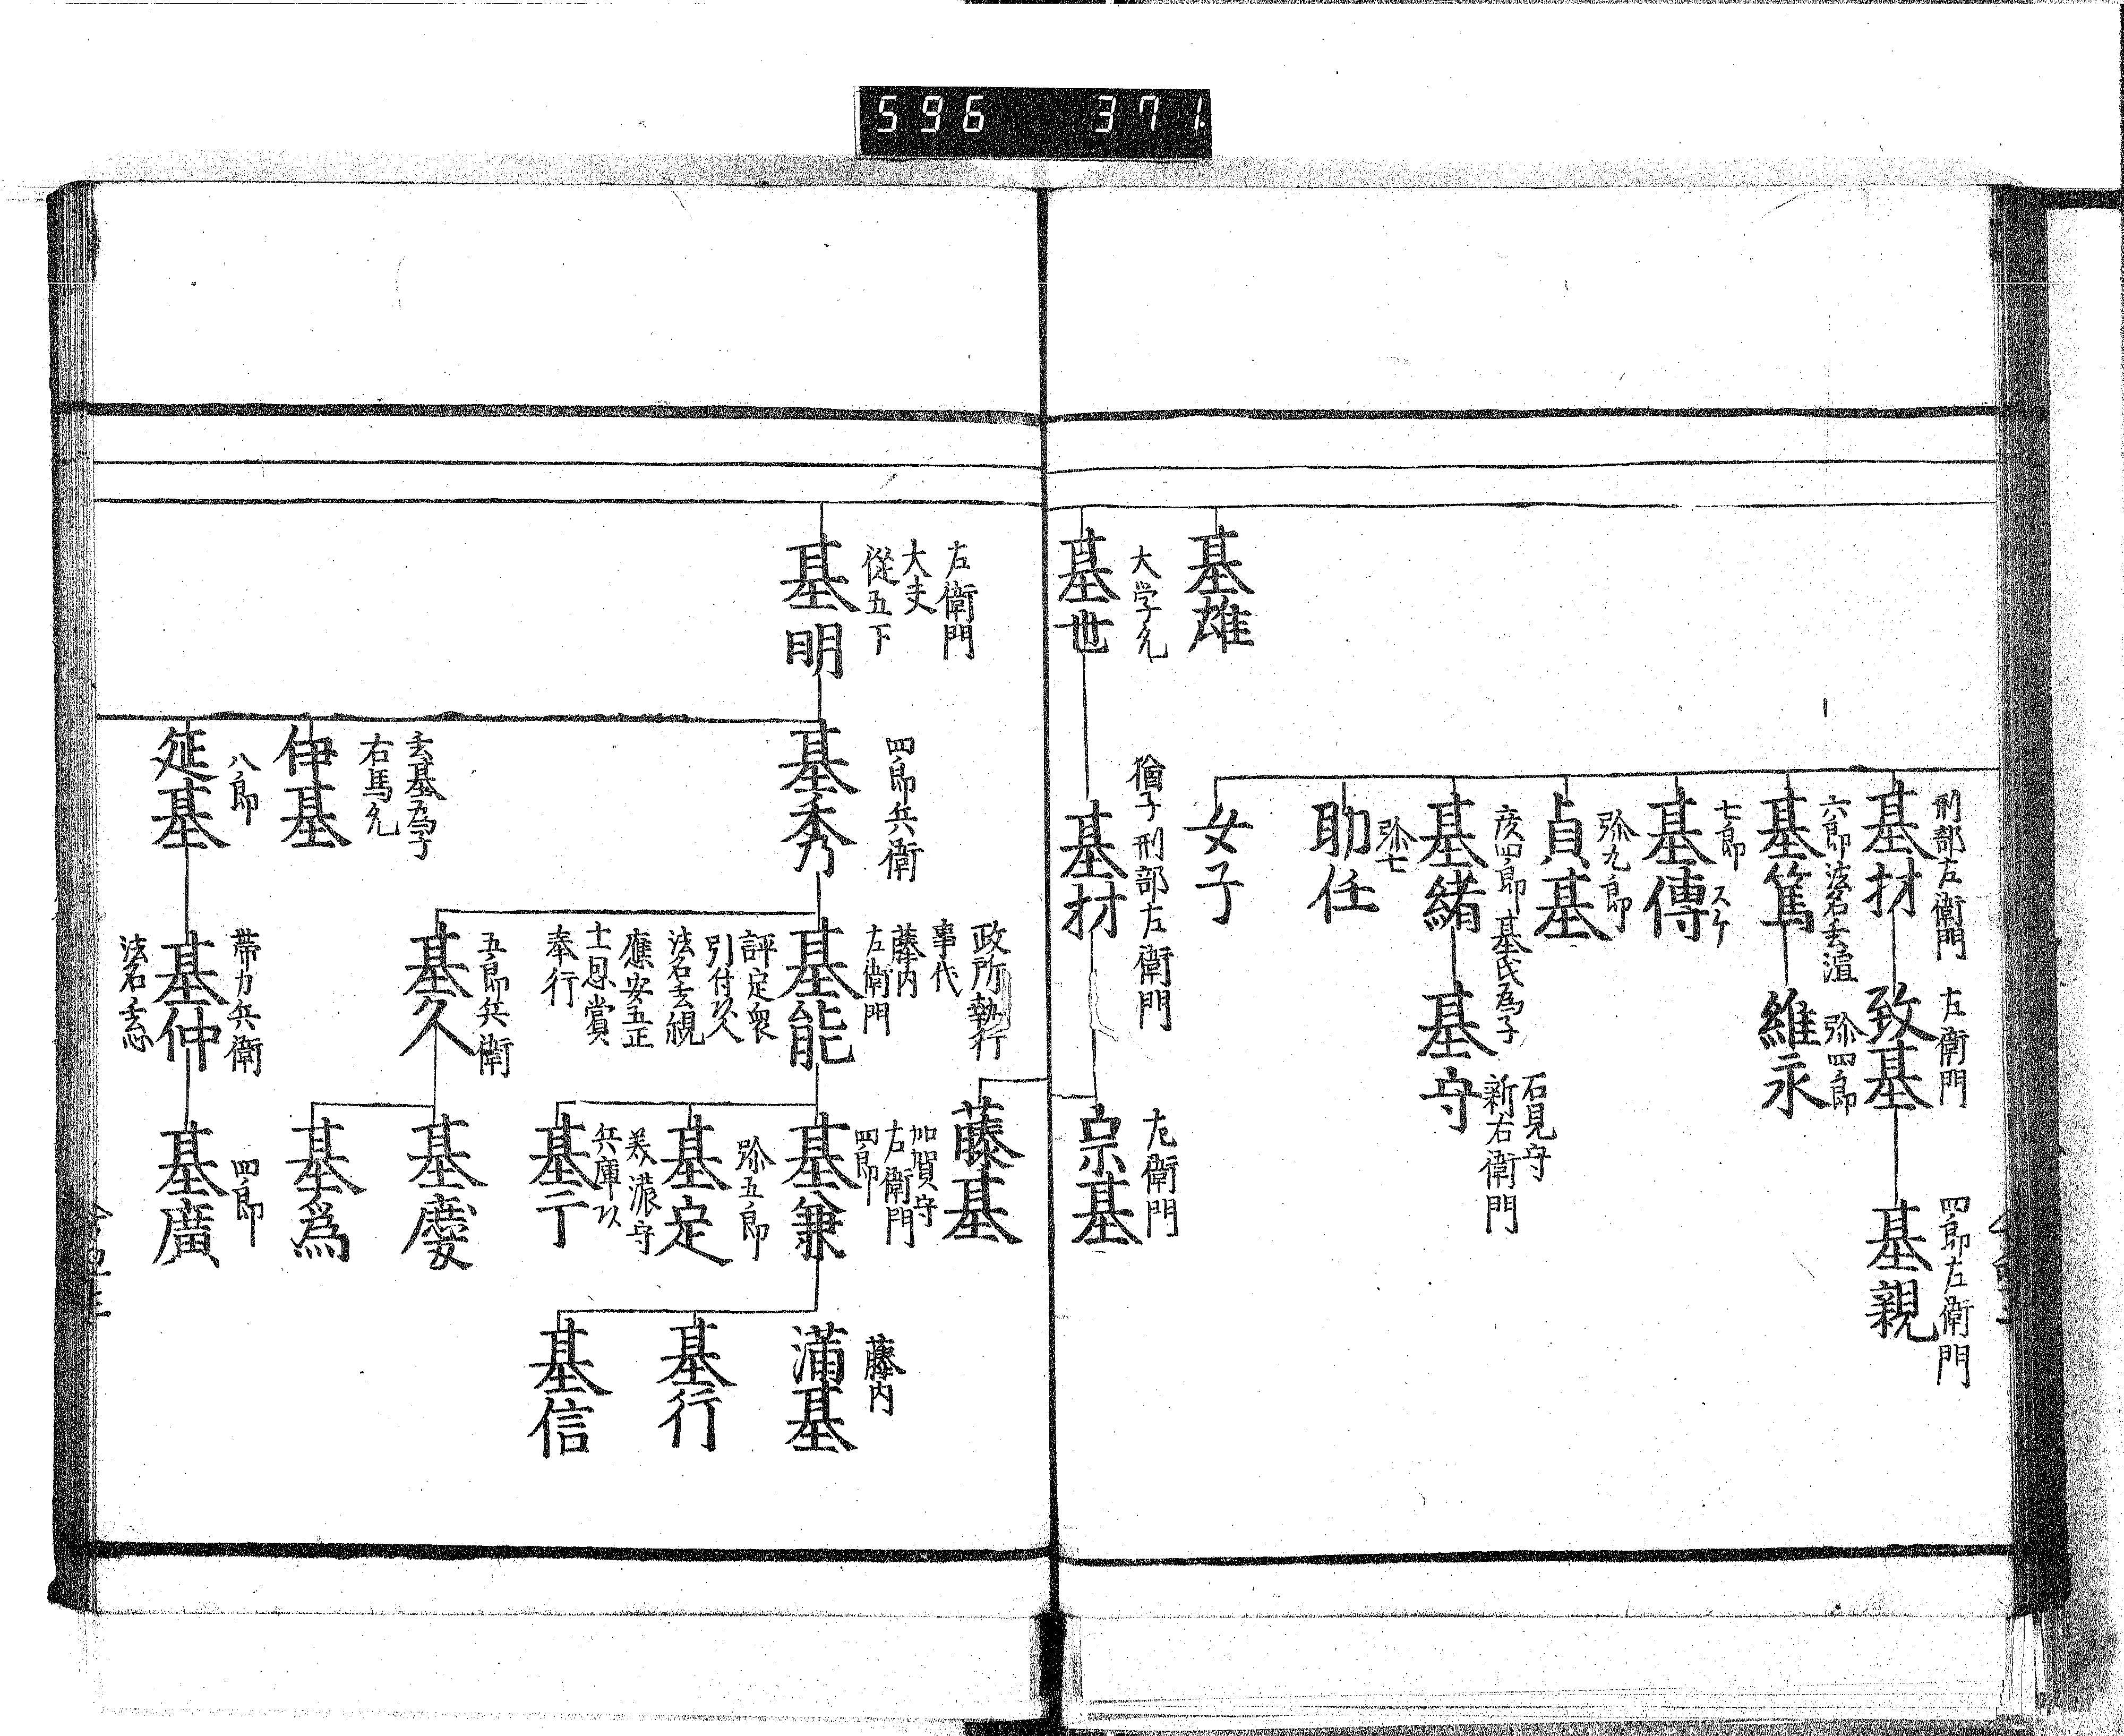 596 371
基雄
大学允
基世
刑部左衛門
基材
左衛門
致基
四郎左衛門
基親
六郎法名玄渲
基篤
弥四郎
維永
七郎 スケ
基傳
弥九郎
貞基
彦四郎 基氏為子
基緒
石見守
新右衛門
基守
弥七
助任
女子
猶子 刑部左衛門
基材
左衛門
宗基
藤基
左衛門
大夫
従五下
基明
四郎兵衛
基秀
政所執行
事代
藤内
左衛門
基能
評定衆
引付
法名玄
應安五正
士恩賞
奉行
加賀守
右衛門
四郎
基兼
藤内
満基
基行
基信
弥五郎
基定
美濃守
兵庫
基
五郎兵衛
基久
基慶
基為
玄基為子
右馬允
伊基
八郎
延基
帯刀兵衛
基仲
法名
四郎
基廣